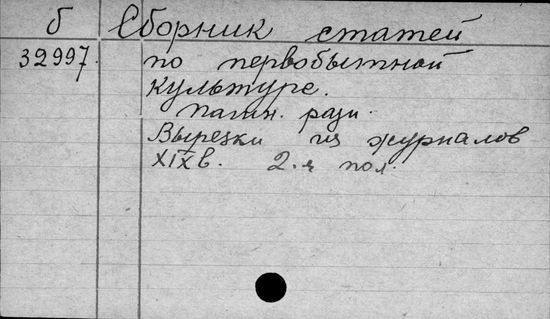 б Сборник статей
32997. по первобытной
культуре.
пагин. разн.
Вырезки из журналов
XIX в. 2-я пол.